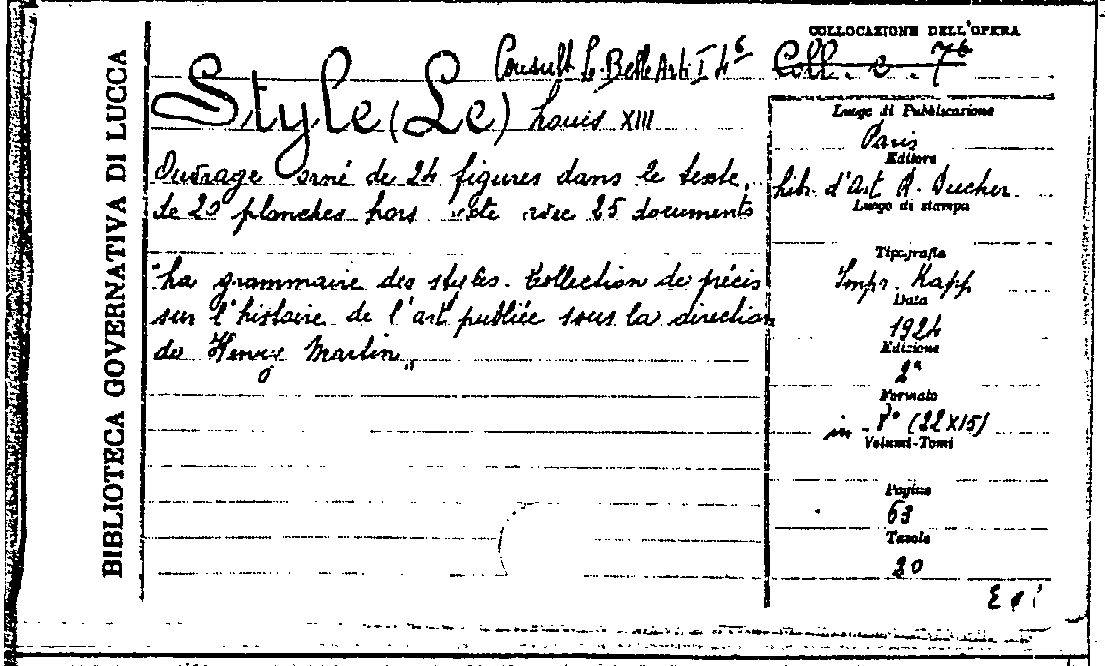 BIBLIOTECA GOVERNATIVA DI LUCCA
COLLOCAZIONE DELL'OPERA
Consult. Le Belle Arti I 4 Coll. c. 76
Style (Le) Louis XIII
Ouvrage orné de 24 figures dans le texte,
de 20 planches hors texte avec 25 documents
"La grammaire des styles. Collection de précis
sur l'histoire de l'art publiée sous la direction
de Henry Martin"
Luogo di Pubblicazione
Paris
Editore
Libr. d'Art R. Ducher.
Luogo di stampa
Tipografia
Impr. Kapp
Data
1924
Edizione
2ª
Formato
in - 8° (22x15)
Volumi-Tomi
Pagine
63
Tavole
20